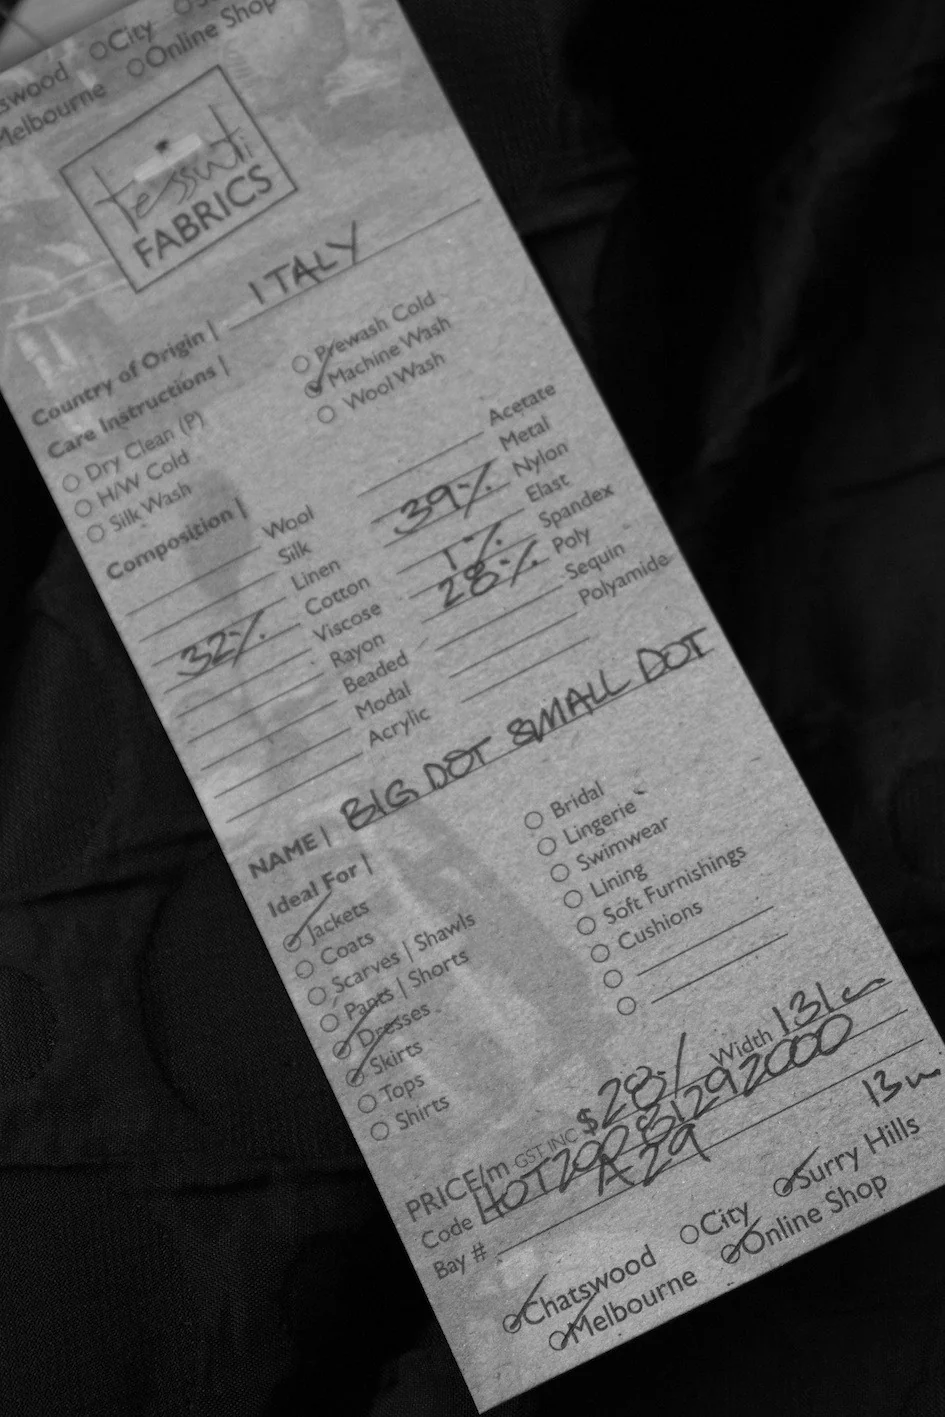 swood City
Melbourne Online Shop
tessuti
FABRICS
Country of Origin | ITALY
Care Instructions |
Dry Clean (P)
H/W Cold
Silk Wash
Prewash Cold
Machine Wash
Wool Wash
Composition |
Wool
Silk
Linen
32% Cotton
Viscose
Rayon
Beaded
Modal
Acrylic
Acetate
Metal
39% Nylon
Elast
1% Spandex
28% Poly
Sequin
Polyamide
NAME | BIG DOT SMALL DOT
Ideal For |
Jackets
Coats
Scarves | Shawls
Pants | Shorts
Dresses
Skirts
Tops
Shirts
Bridal
Lingerie
Swimwear
Lining
Soft Furnishings
Cushions
PRICE/m GST INC $28/ Width 131
Code
Bay # A29 13m
Chatswood City Surry Hills
Melbourne Online Shop